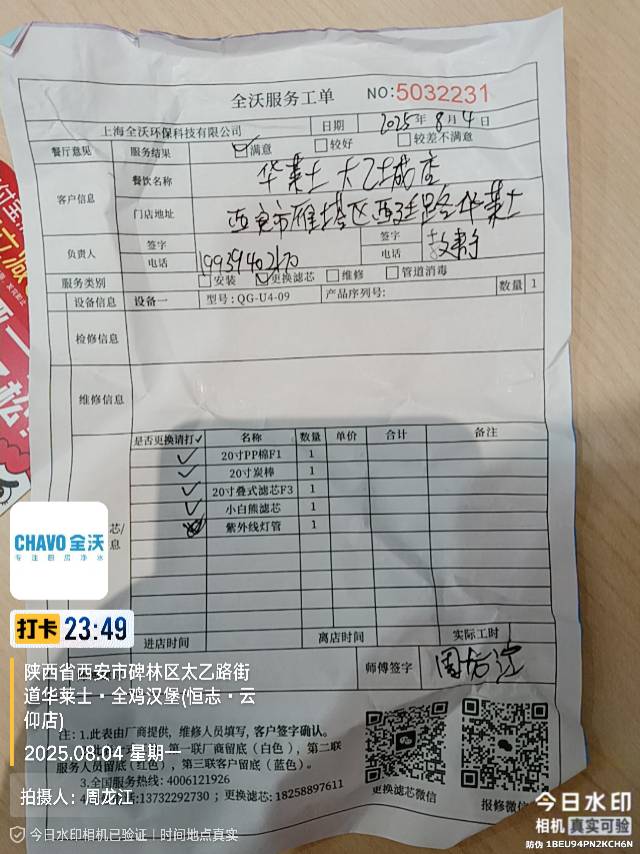 全沃服务工单 NO:5032231
上海全沃环保科技有限公司 日期 2025年8月4日
餐厅意见 服务结果 满意 较好 较差不满意
客户信息 餐饮名称 华莱士
门店地址 西安市雁塔区西延路华莱士
负责人 签字 签字
电话 19939402170 电话
服务类别 安装 更换滤芯 维修 管道消毒
设备信息 设备一 型号: QG-U4-09 产品序列号: 数量 1
检修信息
维修信息
是否更换请打✓ 名称 数量 单价 合计 备注
✓ 20寸PP棉F1 1
✓ 20寸炭棒 1
✓ 20寸叠式滤芯F3 1
✓ 小白熊滤芯 1
紫外线灯管 1
芯/
息
进店时间 离店时间 实际工时
师傅签字
注: 1.此表由厂商提供, 维修人员填写, 客户签字确认。
第一联厂商留底(白色), 第二联
服务人员留底(红色), 第三联客户留底(蓝色)。
3.全国服务热线: 4006121926
电话:13732292730 ; 更换滤芯: 18258897611
更换滤芯微信 报修微信
CHAVO 全沃
专注厨房净水
打卡 23:49
陕西省西安市碑林区太乙路街
道华莱士·全鸡汉堡(恒志·云
仰店)
2025.08.04 星期一
拍摄人: 周龙江
今日水印相机已验证 | 时间地点真实
今日水印
相机 真实可验
防伪 1BEU94PN2KCH6N